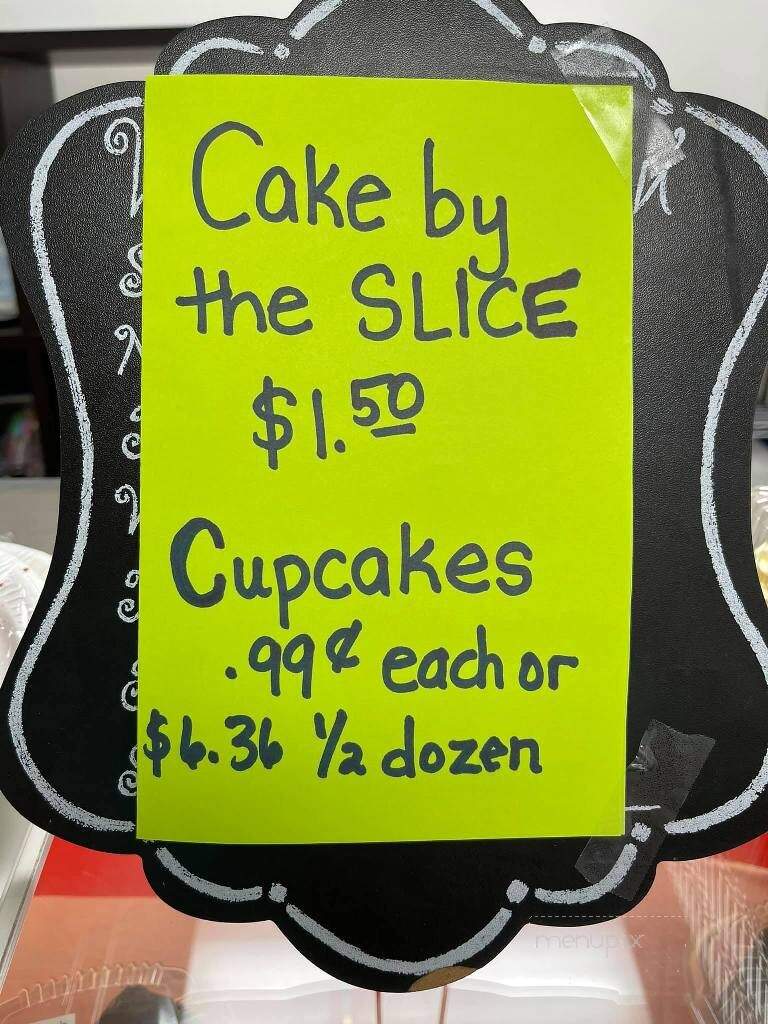 Cake by
the SLICE
$1.50
Cupcakes
.99¢ each or
$6.36 ½ dozen
menupix